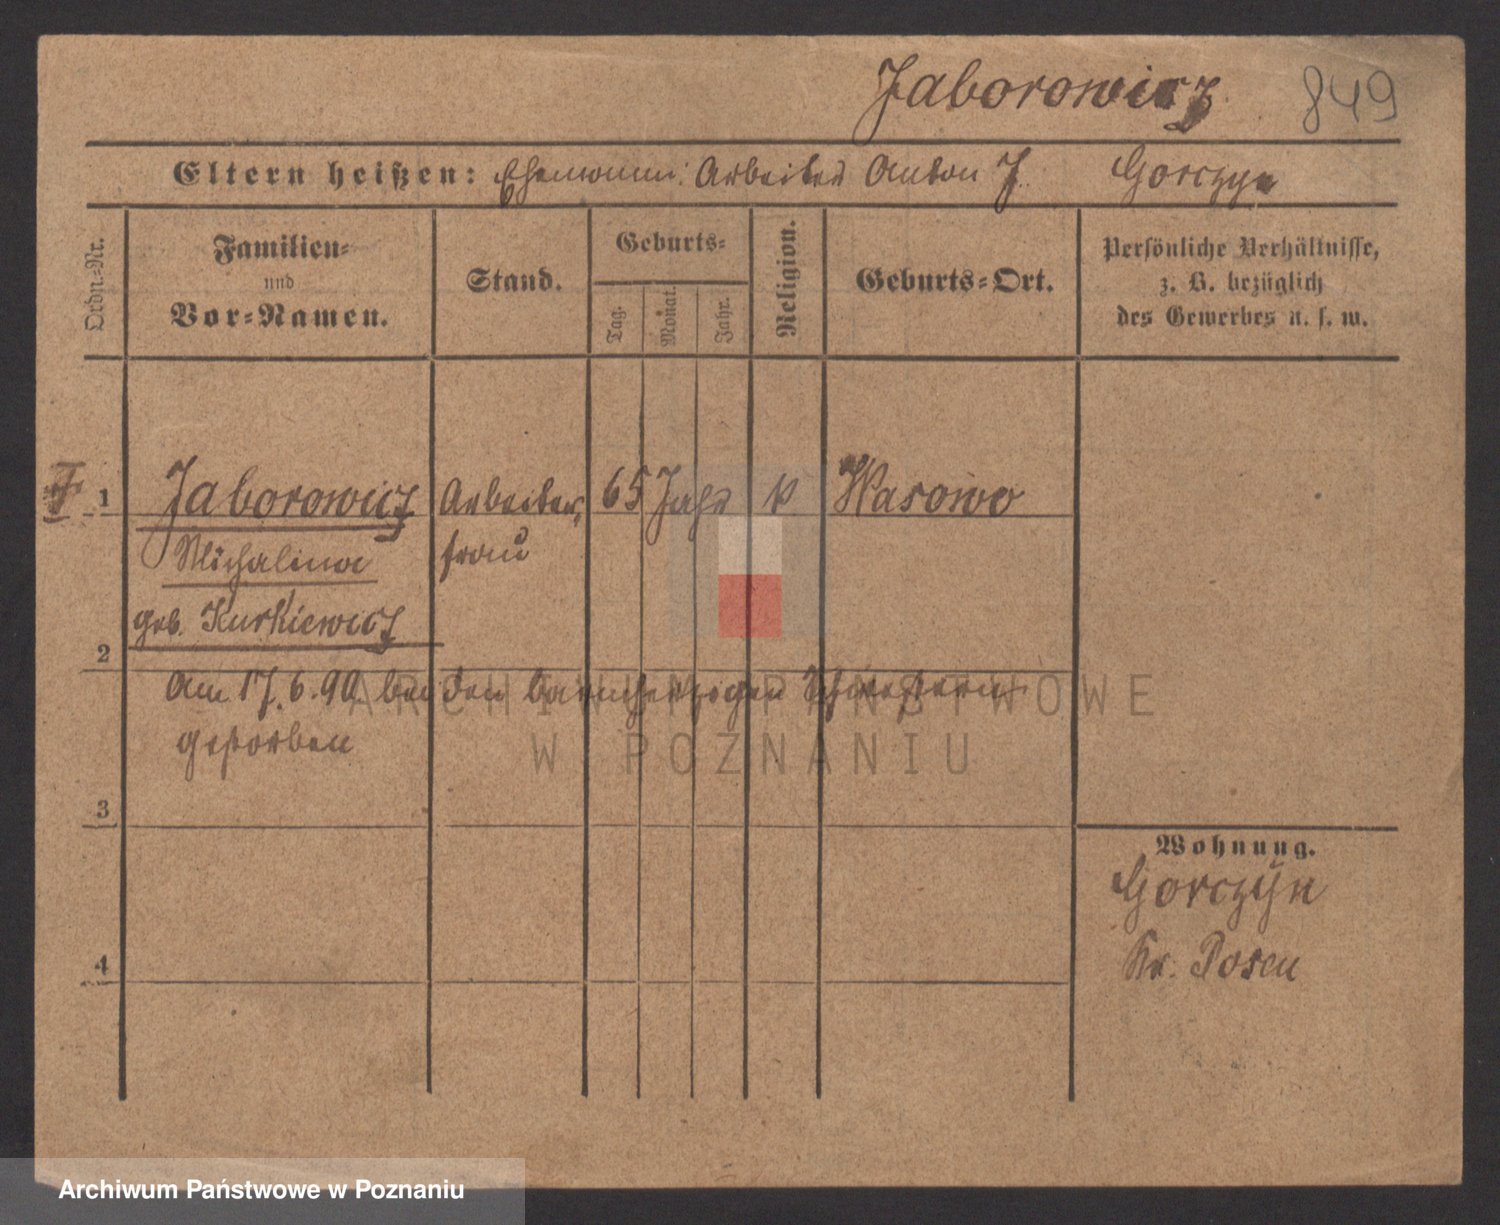 Jaborowicz 849
Eltern heißen: Ehemann: Arbeiter Anton J. Gorczyn
Ordn.-Nr.
Familien-
und
Vor-Namen.
Stand.
Geburts-
Tag.
Monat.
Jahr.
Religion.
Geburts-Ort.
Persönliche Verhältnisse,
z. B. bezüglich
des Gewerbes u. s. w.
1 Jaborowicz Arbeiter- 65 Jahr k Wasowo
Michalina frau
geb. Kurkiewicz
2
Am 17.6.90 bei den barmherzigen Schwestern
gestorben
3
4
Wohnung.
Gorczyn
Kr. Posen
ARCHIWUM PAŃSTWOWE
W POZNANIU
Archiwum Państwowe w Poznaniu